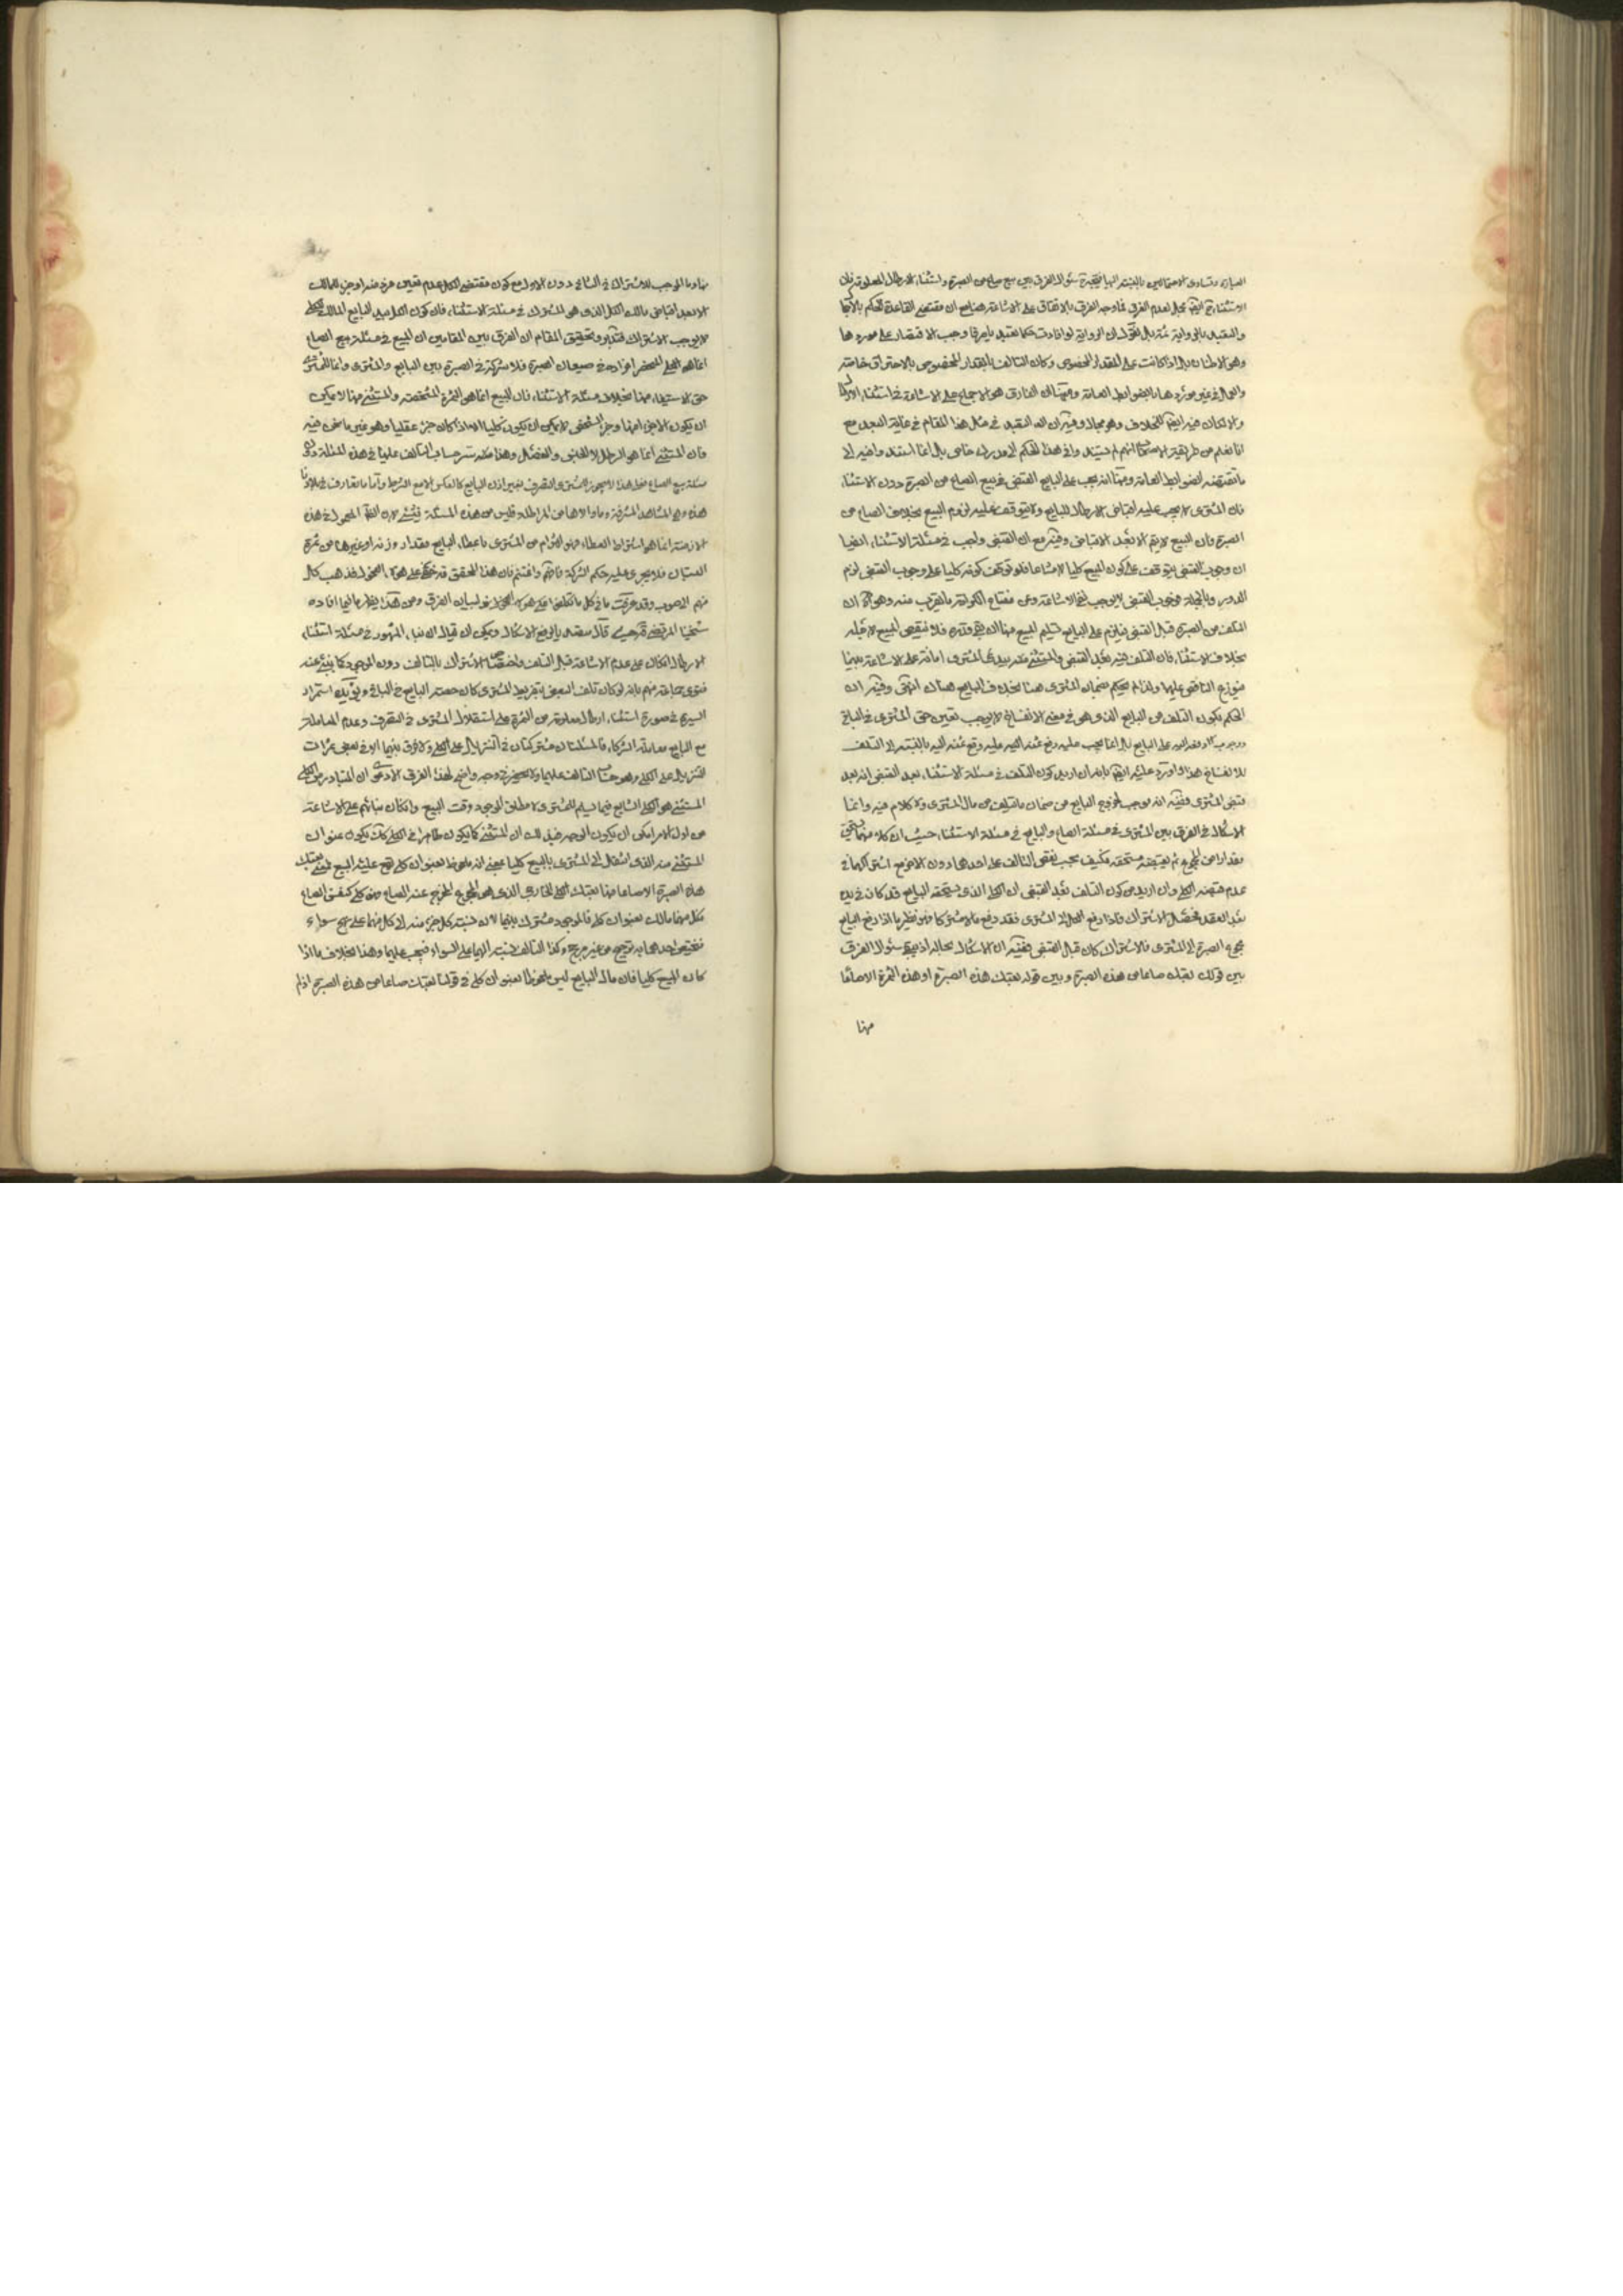 العبارة وتساوى الاحتمالين بالنسبة اليها فيتجه سئوال الفرق بين بيع صاع من الصبرة واستثناء الارطال المعلومة فان
الاستثناء ايضا محتمل لعدم الفرق فما وجه الفرق بالاتفاق على الاشاعة هنا مع ان مقتضى القاعدة الحكم
والتقييد بالرواية ثمة بل نقول ان الرواية لو افادت حكما تعبديا صرفا وجب الاقتصار على موردها
وهو الاطنان بل اذا كانت على المقدار المخصوص وكان التالف بالمقدار المخصوص بالاحتراق خاصة
والعمل في غير موردها بالضوابط العامة ومنها ان الفارق هو الاجماع على الاشاعة في استثناء
والا لكان فيه ايضا الخلاف وهو مجال وفيه ان التعبد في مثل هذا المقام في غاية البعد مع
انا نعلم من طريقة انهم لم يستند وا في هذا الحكم الى مدرك خاص بل انما استندوا فيه الى
ما تقتضيه الضوابط العامة ومنها انه يجب على البايع القبض في بيع الصاع من الصبرة دون الاستثناء
فان المشترى لا يجب عليه اقباض الارطال للبايع ولا يتوقف عليه لزوم البيع بخلاف الصاع من
الصبرة فان البيع لا يتم الا بعد الاقباض وفيه مع ان القبض واجب في مسئلة الاستثناء ايضا
ان وجوب القبض يتوقف على كون المبيع كليا لا مشاعا فلو توقف كونه كليا على وجوب القبض لزم
الدور وبالجملة فوجوب القبض لا يوجب نفى الاشاعة وعن مفتاح الكرامة ما يقرب منه وهو ان
التلف من الصبرة قبل القبض فيلزم على البايع تسليم المبيع منها وان بقى قدره فلا ينقص المبيع لاجله
بخلاف الاستثناء فان التلف فيه بعد القبض والمستثنى بيد المشترى امانة على الاشاعة بينهما
فيوزع الناقص عليهما ولذا لم يحكم بضمان المشترى هنا بخلاف البايع هناك انتهى وفيه ان
الحكم بكون التلف من البايع الذى هو في معنى الانفساخ لا يوجب تعين حق المشترى في الباقى
على البايع بل انما يجب عليه دفع بالنسبة الى التلف
للانفساخ هذا واورد عليه ايضا بانه ان اريد كون التلف في مسئلة الاستثناء بعد القبض انه بعد
قبض المشترى ففيه انه موجب لخروج البايع من ضمان ما يتلف من مال المشترى ولا كلام فيه وانما
الاشكال في الفرق بين المشترى في مسئلة الصاع والبايع في مسئلة الاستثناء حيث ان كلا منهما يستحق
مقدارا من المجموع لم يقبضه مستحقه فكيف يحسب نقص التالف على احدهما دون الاخر مع اشتراكهما في
عدم قبضه الكلى وان اريد من كون التلف بعد القبض ان الكلى الذى يستحقه البايع قد كان في يده
بعد العقد فحصل الاشتراك فاذا دفع الكل الى المشترى فقد دفع مالا مشتركا فهو نظير ما اذا دفع البايع
مجموع الصبرة الى المشترى فالاشتراك كان قبل القبض ففيه ان الاشكال بحاله اذ يبقى سئوال الفرق
بين قولك بعتك صاعا من هذه الصبرة وبين قوله بعتك هذه الصبرة او هذه الثمرة الا صاعا
منها
منها وما الموجب للاشتراك في الثانى دون الاول مع كون مقتضى الكلى عدم تعين فرد منه او جزء لمالكه
الا بعد اقباض مالك الكل الذى هو المشترك في مسئلة الاستثناء فان كون الكل بيد البايع المالك للكلى
لا يوجب الاشتراك فتدبر وتحقيق المقام ان الفرق بين المقامين ان المبيع في مسئلة بيع الصاع
انما هو الكلى المنحصر افراده في صيعان الصبرة فلا شركة في الصبرة بين البايع والمشترى وانما للمشترى
حق الاستيفاء منها بخلاف مسئلة الاستثناء فان المبيع انما هو الثمرة المشخصة والمستثنى منها لا يمكن
ان يكون الا جزءا منها وجزء الشخص لا يمكن ان يكون كليا الا اذا كان جزءا عقليا وهو غير ما نحن فيه
فان المستثنى انما هو الرطل لا الجنس والفصل وهذا سر حساب التالف عليهما في هذه المسئلة دون
مسئلة بيع الصاع ولهذا لا يجوز للمشترى التصرف بغير اذن البايع كالعكس الا مع الشرط واما ما تعارف في بلاد
هذه وهى المشاهد المشرفة وما والاها من المراطلة فليس من هذه المسئلة في شىء لان المعمول في هذه
الازمنة انما هو اشتراط العطاء فهو التزام من المشترى باعطاء البايع مقدار وزنه او غيرها من ثمرة
البستان فلا يجرى عليه حكم الشركة فافهم واغتنم فان هذا التحقيق قد خفى على هؤلاء الفحول فذهب كل
منهم الى صوب وقد عرفت ما في كل ما تكلف له هؤلاء الفحول لبيان الفرق ومن هذا يظهر ما فيما افاده
شيخنا المرتضى قدس سره قال ما يدفع الاشكال ويمكن ان يقال ان بناء المشهور في مسئلة استثناء
الارطال انكان على عدم الاشاعة قبل التلف واختصاص الاشتراك بالتالف دون الموجود كما ينبئ عنه
فتوى جماعة منهم بانه لو كان تلف البعض بتفريط المشترى كان حصة البايع في الباقى ويؤيده استمرار
السيرة في صورة استثناء ارطال معلومة من الثمرة على استقلال المشترى في التصرف وعدم المعاملة
مع البايع معاملة الشركاء فالمسئلتان مشتركتان في التنزيل على الكلى ولا فرق بينهما الا في بعض ثمرات
التنزيل على الكلى وهو حساب التالف عليهما ولا يحضرنى وجه واضح لهذا الفرق الا دعوى ان المتبادر من الكلى
المستثنى هو الكلى الشايع فيما يسلم للمشترى لا مطلق الموجود وقت البيع وان كان بنائهم على الاشاعة
من اول الامر امكن ان يكون الوجه في ذلك ان المستثنى كما يكون ظاهرا في الكلى كذلك يكون عنوان
المستثنى منه الذى انتقل الى المشترى بالبيع كليا بمعنى انه ملحوظ بعنوان كلى يقع عليه البيع فمعنى بعتك
هذه الصبرة الا صاعا منها بعتك الكلى الخارجى الذى هو المجموع المخرج عنه الصاع فهو كلى كنفس الصاع
فكل منهما مالك لعنوان كلى فالموجود مشترك بينهما لان نسبة كل جزء منه الى كل منهما على نهج سواء
فتخصيص احدهما به ترجيح من غير مرجح وكذا التالف نسبته اليهما على السواء فيحسب عليهما وهذا بخلاف ما اذا
كان المبيع كليا فان مال البايع ليس ملحوظا بعنوان كلى في قولنا بعتك صاعا من هذه الصبرة اذ لم